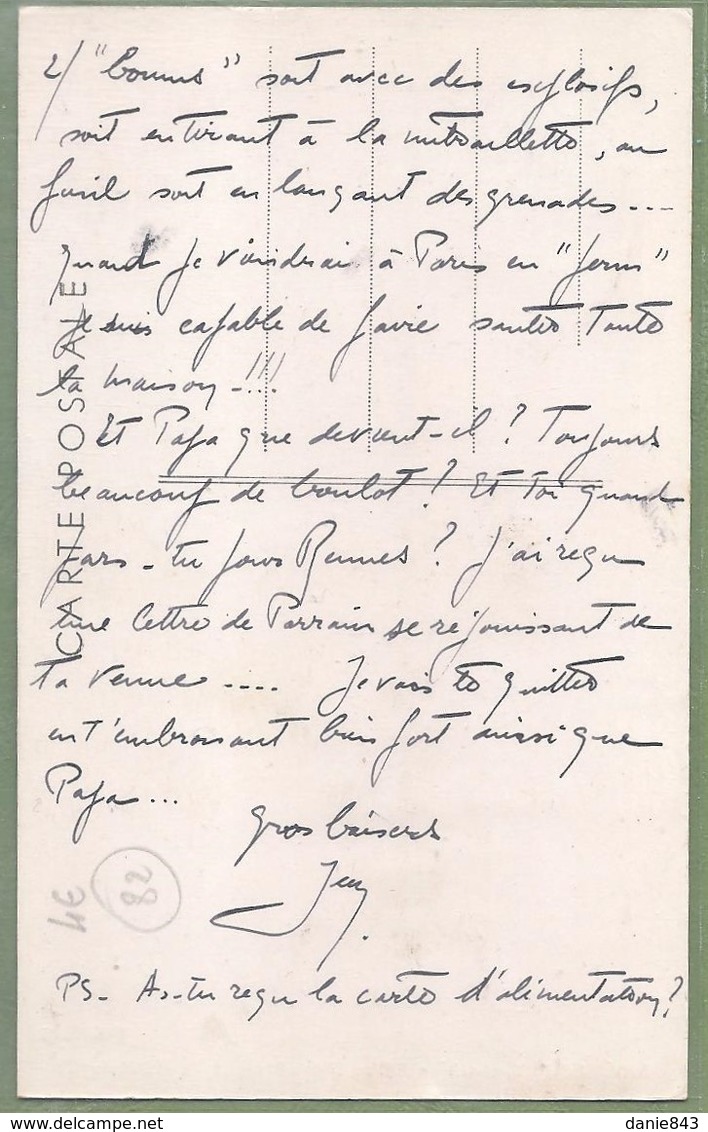 2/ "boums" soit avec des explosifs,
soit en tirant à la mitraillette, au
fusil soit en lançant des grenades...
Quand je viendrai à Paris en "perm"
je suis capable de faire sauter toute
la maison_!!!
Et Papa que devient-il? Toujours
beaucoup de boulot? Et toi quand
pars-tu pour Rennes? J'ai reçu
une lettre de Parrain se réjouissant de
ta venue .... Je vais te quitter
en t'embrassant bien fort ainsi que
Papa...
Gros baisers
PS_ As-tu reçu la carte d'alimentation?
CARTE POSTALE
4€
82
danie843